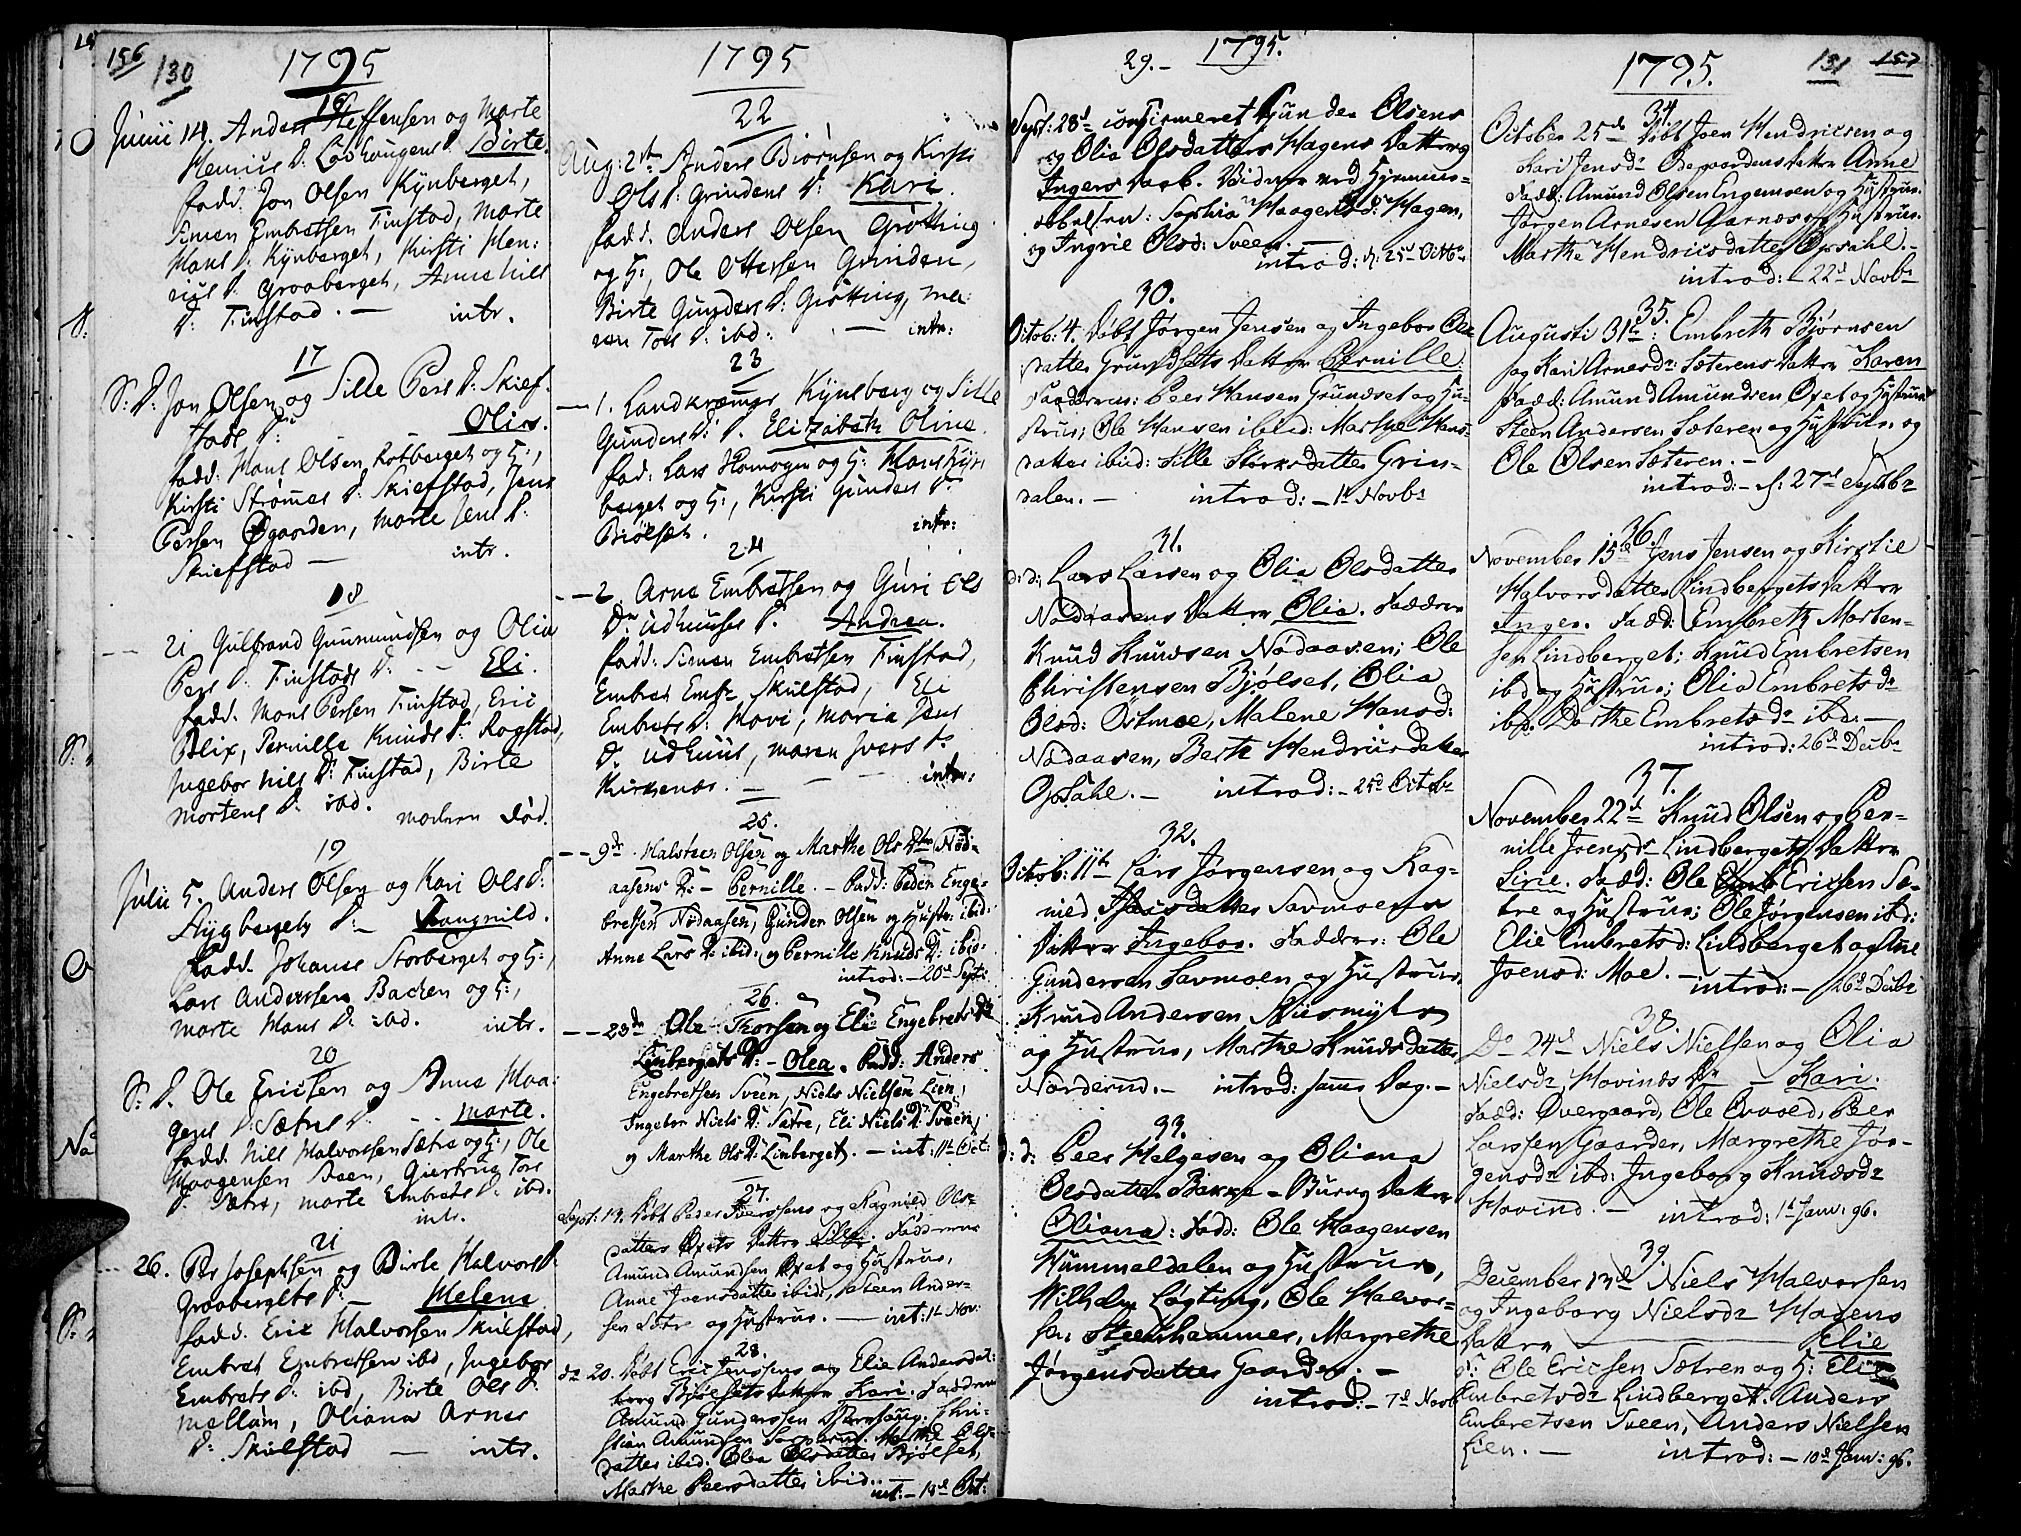 156
130
1795
16
Junii 14. Anders Steffensen og Marte
Henius D: Løshaugens D: Birte.
fadd. Jon Olsen Kÿnberget,
Simen Embretsen Finstad, Marte
Hans D: Kÿnberget, Kirsti Hen:
rius D: Graaberget, Anne Nils
D: Finstad. — intr.
17
S: D: Jon Olsen og Sille Pers D: Skief-
stads D: Olia.
fadd: Hans Olsen Løtberget og H:,
Kirsti Strømer D: Skiefstad, Jens
Persen Øgaarden, Marte Jens D:
Skiefstad — intr.
18
21 Gulbrand Gunmundsen og Olia
Pers D: Finstads D: — Eli.
fadd. Mons Persen Finstad, Eric
Blix, Pernille Knuds D: Rogstad,
Ingebor Nils D: Finstad, Birte
Mortens D: ibd. modern død.
19
Julii 5. Anders Olsen og Kari Ols D:
Stÿgbergets D: Raugnild.
fadd. Johannes Storberget og H:,
Lars Anderssen Backen og H:,
Marte Hans D: ibd. intr.
20
S: D. Ole Ericsen og Anne Haa:
gens D: Sætres D: — Marte.
fadd. Nils Halvorssen Sætre og H:, Ole
Haagensen Moen, Giertrug Tors
D. Sætre, Marte Embrets D: ibd.
intr.
21
26. Per Josephsen og Birte Halvors D:
Graabergets D: — Helene
fadd. Eric Halvorssen Skulstad,
Embret Embretssen ibd, Ingebor
Embrets D: ibd, Birte Ols D:
Mellum, Oliana Arnes
D: Skulstad — intr.
1795
22
Aug: 2den Anders Biørnsen og Kirsti
Ols D: Grindens D: Kari.
fadd. Anders Olsen Grøtting
og H:, Ole Ottersen Grinden,
Birte Gunders D: Grøtting, Ma:
ren Tors D: ibd: — intr:
23
— 1. Landkræmer Kÿnsberg og Sille
Gunders D: D. Elizabeth Oline.
fad: Lars Homogen og H: Hans Kÿn
berget og H:, Kirsti Gunders D:
Biølset. intr:
24
— 2. Arne Embretsen og Guri Ols
D: Udhuuses D. Andrea.
fadd: Simen Embretsen Finstad,
Embret Embr: Skulstad, Eli
Embrets D: Hovi, Maria Jens
D. Udhuus, Maren Ivers D:
Kirkenær. — intr:
25.
— 9de Halsteen Olsen og Marthe Ols Dtr Nød-
aasens D: — Pernille. — Fadd: Peder Enge-
bretsen Nødaasen, Gunder Olsen og Hustr: ibid:
Anne Lars D: ibid: og Pernille Knuds D: ibid:
introd: — 20d Sept:
26.
— 23de Ole Thorsen og Eli Engebrets D:
Linbergets D: — Olea. Fadd: Anders
Engebretsen Sveen, Niels Nielsen Lien,
Ingebor Niels D: Sætre, Eli Niels D: Sveen,
og Marthe Ols D: Linberget. — int: 11te Oct:
27.
Sept: 13. Døbt Peder Iverssens og Ragnild Ols-
datters Øxets Datter Sille. Fadderne
Amund Amundsen Øxet og Hustrue,
Anne Joensdatter ibid: Steen Ander-
sen Sætre og Hustrue. — int: 1te Nov:
28.
d: 20. Døbt Eric Jenssens og Elie Andersdat:
berg Bjølsets datter Kari. Fadderne
Amund Gunderssen Bjerchoug: Chri-
stian Amundsen Marthe Ols-
datter ibid: Olea Olsdatter Bjølset,
Marthe Peersdatter ibid:
int: — 18d Oct:
29. — 1795.
Sept: 28d confirmeret Gunder Olsens
og Olia Olsdatters Hagens Datter
Ingers Daab. Vidner ved Hjemme-
døbelsen: Sophia Haagensd: Hagen,
og Ingrie Olsd: Sveen. —
introd: d: 25d Octbr
30.
Octob: 4. Døbt Jørgen Jensen og Ingebor Ols-
datter Grundsets Datter Pernille.
Fadderne: Peer Hansen Grundset og Hu-
strue; Ole Hansen ibid: Marthe Hans-
datter ibid: Sille Størksdatter Grin-
dalen. — introd: — 1te Novbr
31.
d: d: Lars Larsen og Olia Olsdatter
Nødaasens Datter Olia. Faddere
Knud Knudsen Nødaasen; Ole
Christensen Bjølset, Olia
Olsd: Ostmoe, Malene Hansd:
Nødaasen, Berte Hendricsdatter
Opsahl. — introd: — 25d Octobr
32.
Octob: 11te Lars Jørgensen og Rag-
nied Savmoens
Datter Ingebor. Faddere: Ole
Gundersen Savmoen og Hustrue,
Knud Andersen Nusmyhr
og Hustrue, Marthe Knudsdatter
Norderud. — introd: samme Dag. —
33.
d: d: Peer Helgesen og Oliana
Olsdatter Bakke-Burug Datter
Oliana: Fadd: Ole Haagensen
Hummeldalen og Hustrue,
Wilhelm Løgting, Ole Halvor-
sen Steenhammer, Margrethe
Jørgensdatter Gaarder. —
introd: — 7d Novb
1795.
131 157
34.
October 25de Døbt Joen Hendricsen og
Kari Jensdr Øegaardens datter Anne
Fadd: Amund Olsen Engemoen og Hustrue.
Jørgen Arnesen Aarnæs og Hustrue.
Marthe Hendricsdatter Opsahl. —
introd: — 22d Novbr
35.
Augusti 31te: Embreth Bjørnsen
og Kari Arnesdr Sæterens datter Karen
Fadd: Amund Amundsen Øxet og Hustrue
Steen Andersen Sæteren og Hustrue og
Ole Olsen Sæteren. —
introd: — d: 27d Septbr
36.
November 15de Jens Jensen og Kirstie
Halvorsdatter Lindbergets Datter
Inger. Fadd: Embreth Morten-
sen Lindberget; Knud Embretsen
ibd og Hustrue; Olia Embretsdr
ibd. Dorthe Embretsdr ibd: —
introd: 26d Decbr
37.
November 22d Knud Olsen og Per-
nille Joensdr Lindbergets Datter
Sirie. Fadd: Ole Ericsen Sæ-
tre og Hustrue; Ole Jørgensen ibd:
Elie Embretsd: Lindberget og Anne
Joensd: Moe. — introd: — 26d Decbr
38.
Do 24d Niels Nielsen og Olia
Nielsdr Hovinds Dr — Kari.
Fadd: Overgaard, Ole Qvoled, Peer
Larssen Gaarder, Margrethe Jør-
gensdr ibd: Ingeborg Knudsdr
Hovind. — introd: 1d Janv: 96.
39.
December 13de Niels Halvorsen
og Ingeborg Nielsdr Hagens
Datter — Elie
F: Ole Ericsen Sætren og H: Elie
Embretsdr Lindberget. Anders
Embretsen Sveen, Anders Nielsen
Lien. — introd: — 10d Janv: 96.